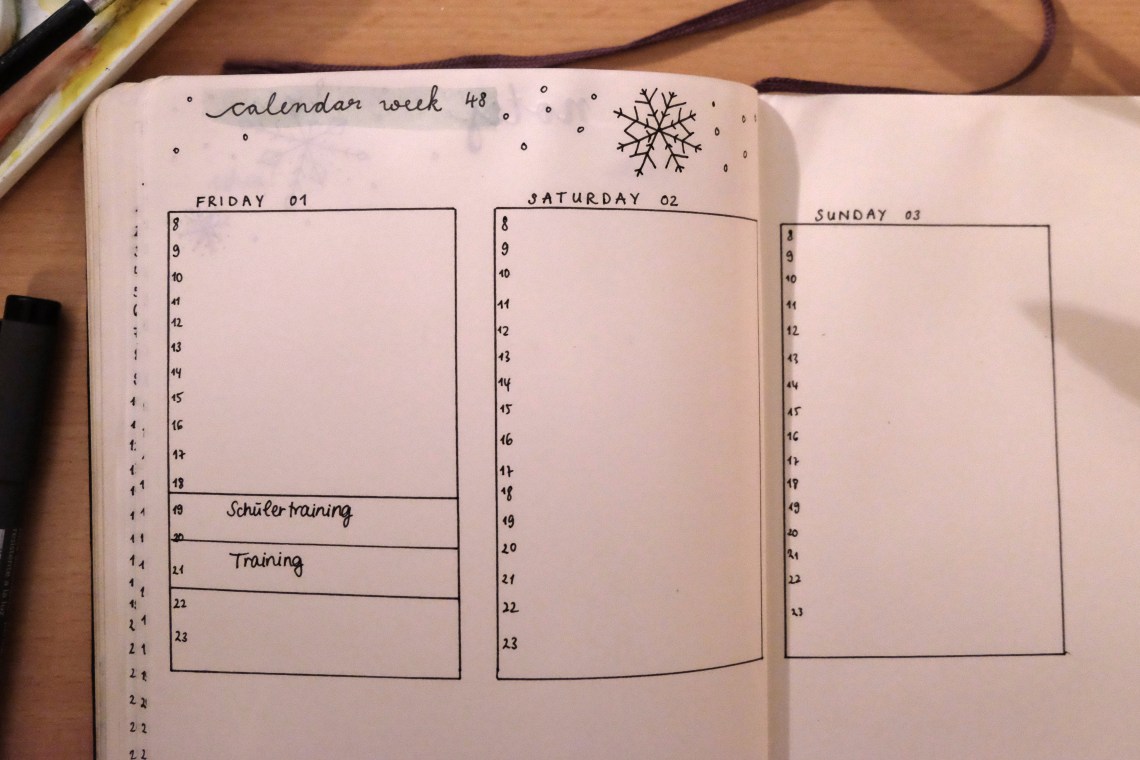 calendar week 48
FRIDAY 01
8
9
10
11
12
13
14
15
16
17
18
19 Schülertraining
20
Training
21
22
23
SATURDAY 02
8
9
10
11
12
13
14
15
16
17
18
19
20
21
22
23
SUNDAY 03
8
9
10
11
12
13
14
15
16
17
18
19
20
21
22
23